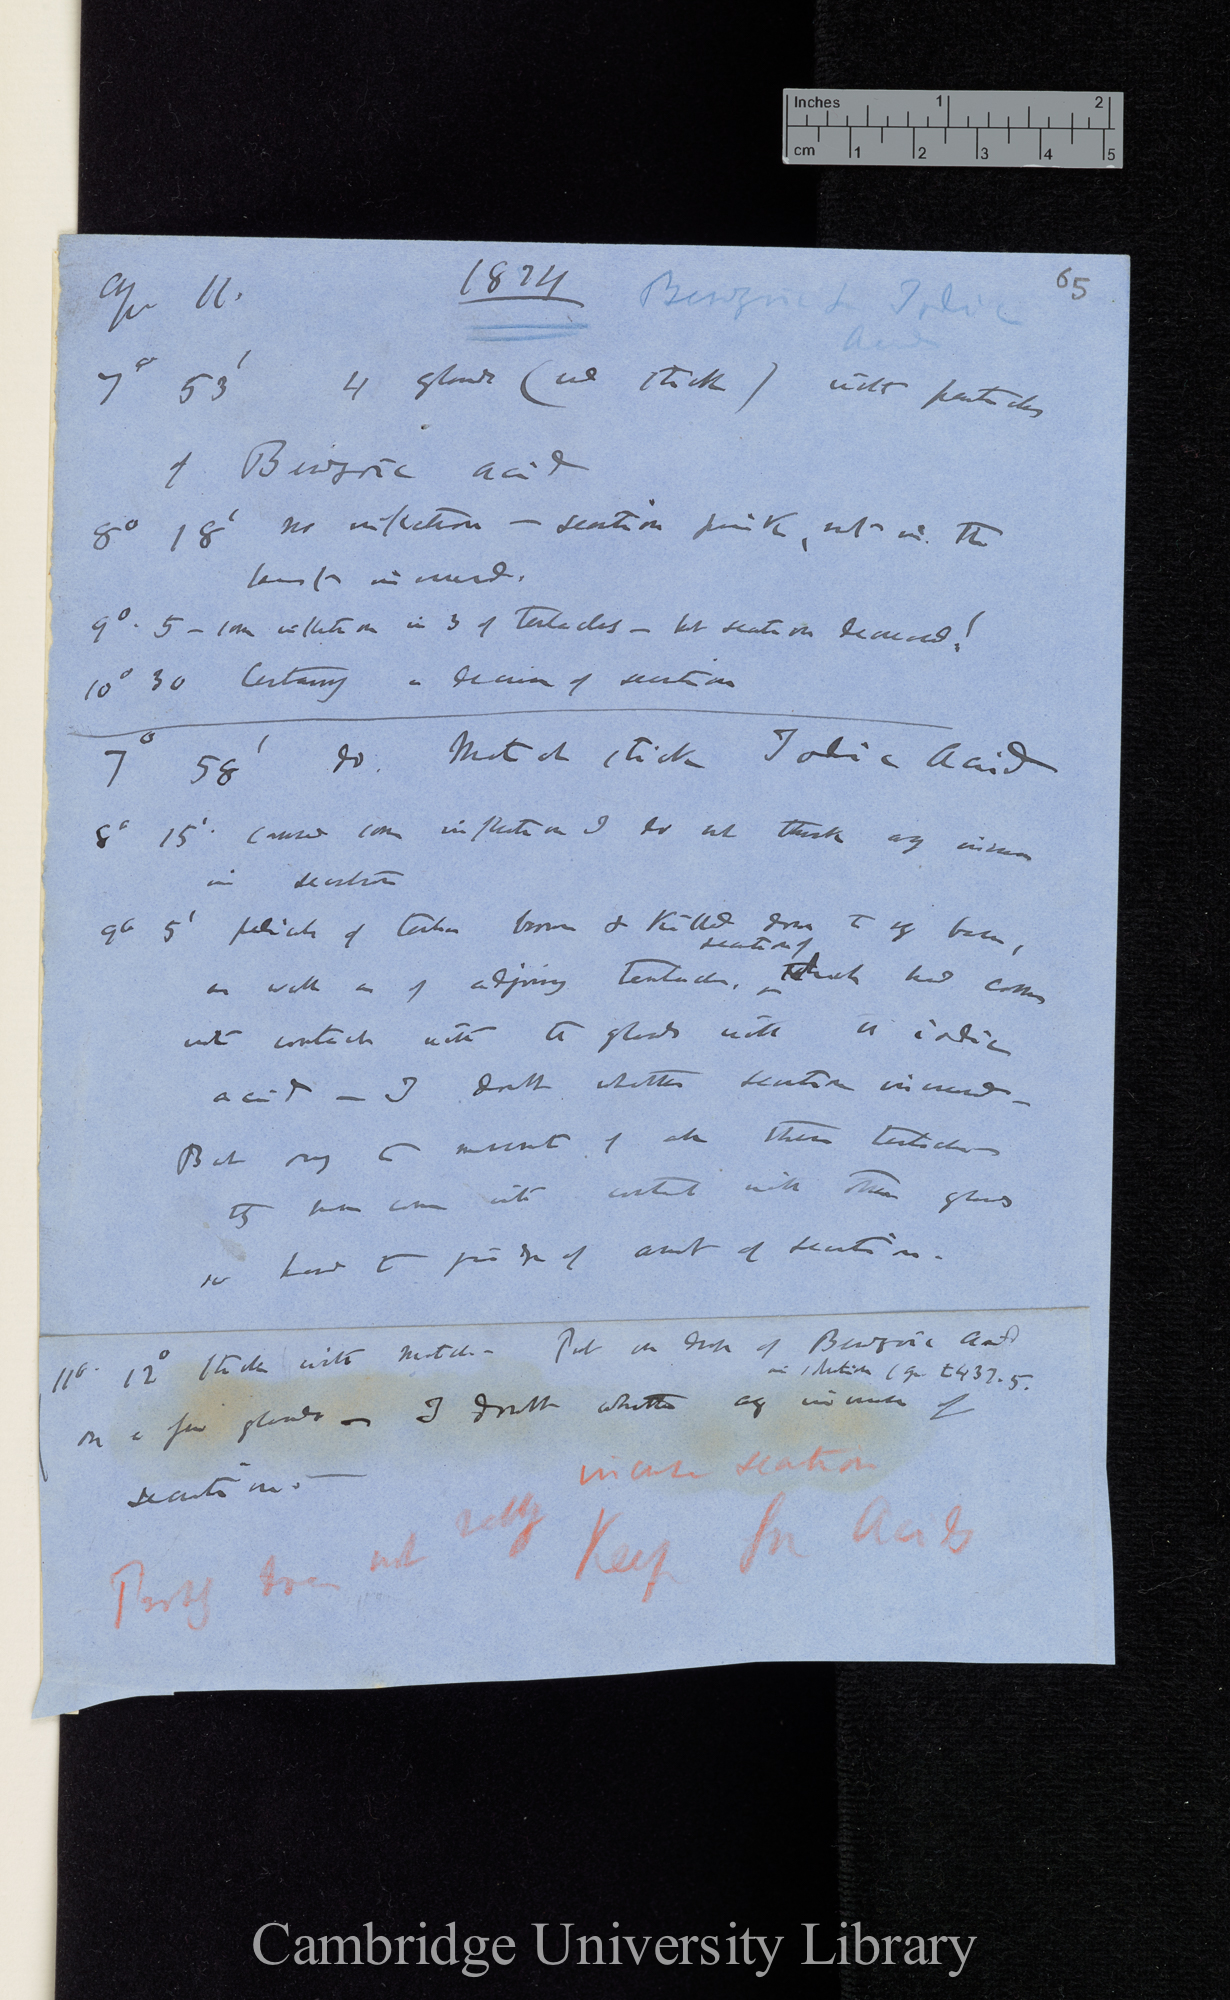 Inches 1 2
cm 1 2 3 4 5
65
Ap 11. 1874 Benzoic & Iodic
Acid
7° 53' 4 glands (red stick) with particles
of Benzoic acid
8° 18' no inflection — secretion pink, not in the
least increased.
9°. 5 — some inflection in 3 of tentacles — but secretion decreased!
10° 30 Certainly a decrease of secretion
7° 58' do. Match stick Iodic Acid
8° 15'. caused some inflection I do not think any increase
in secretion
9° 5' pedicels of tentacles brown & killed down to
as well as of adjoining tentacles, secretion of which had come
into contact with the glands with the iodic
acid — I doubt whether secretion increased —
But owing to movement of all these tentacles
they have come into contact with other glands
so hard to judge of amount of secretion.
11°. 12° stick with match — Put on drop of Benzoic Acid
in solution (1 gr to 437.5.
on a few glands — I doubt whether any increase of
secretion. —
increase secretion
Probably does not really Keep for Acids
Cambridge University Library